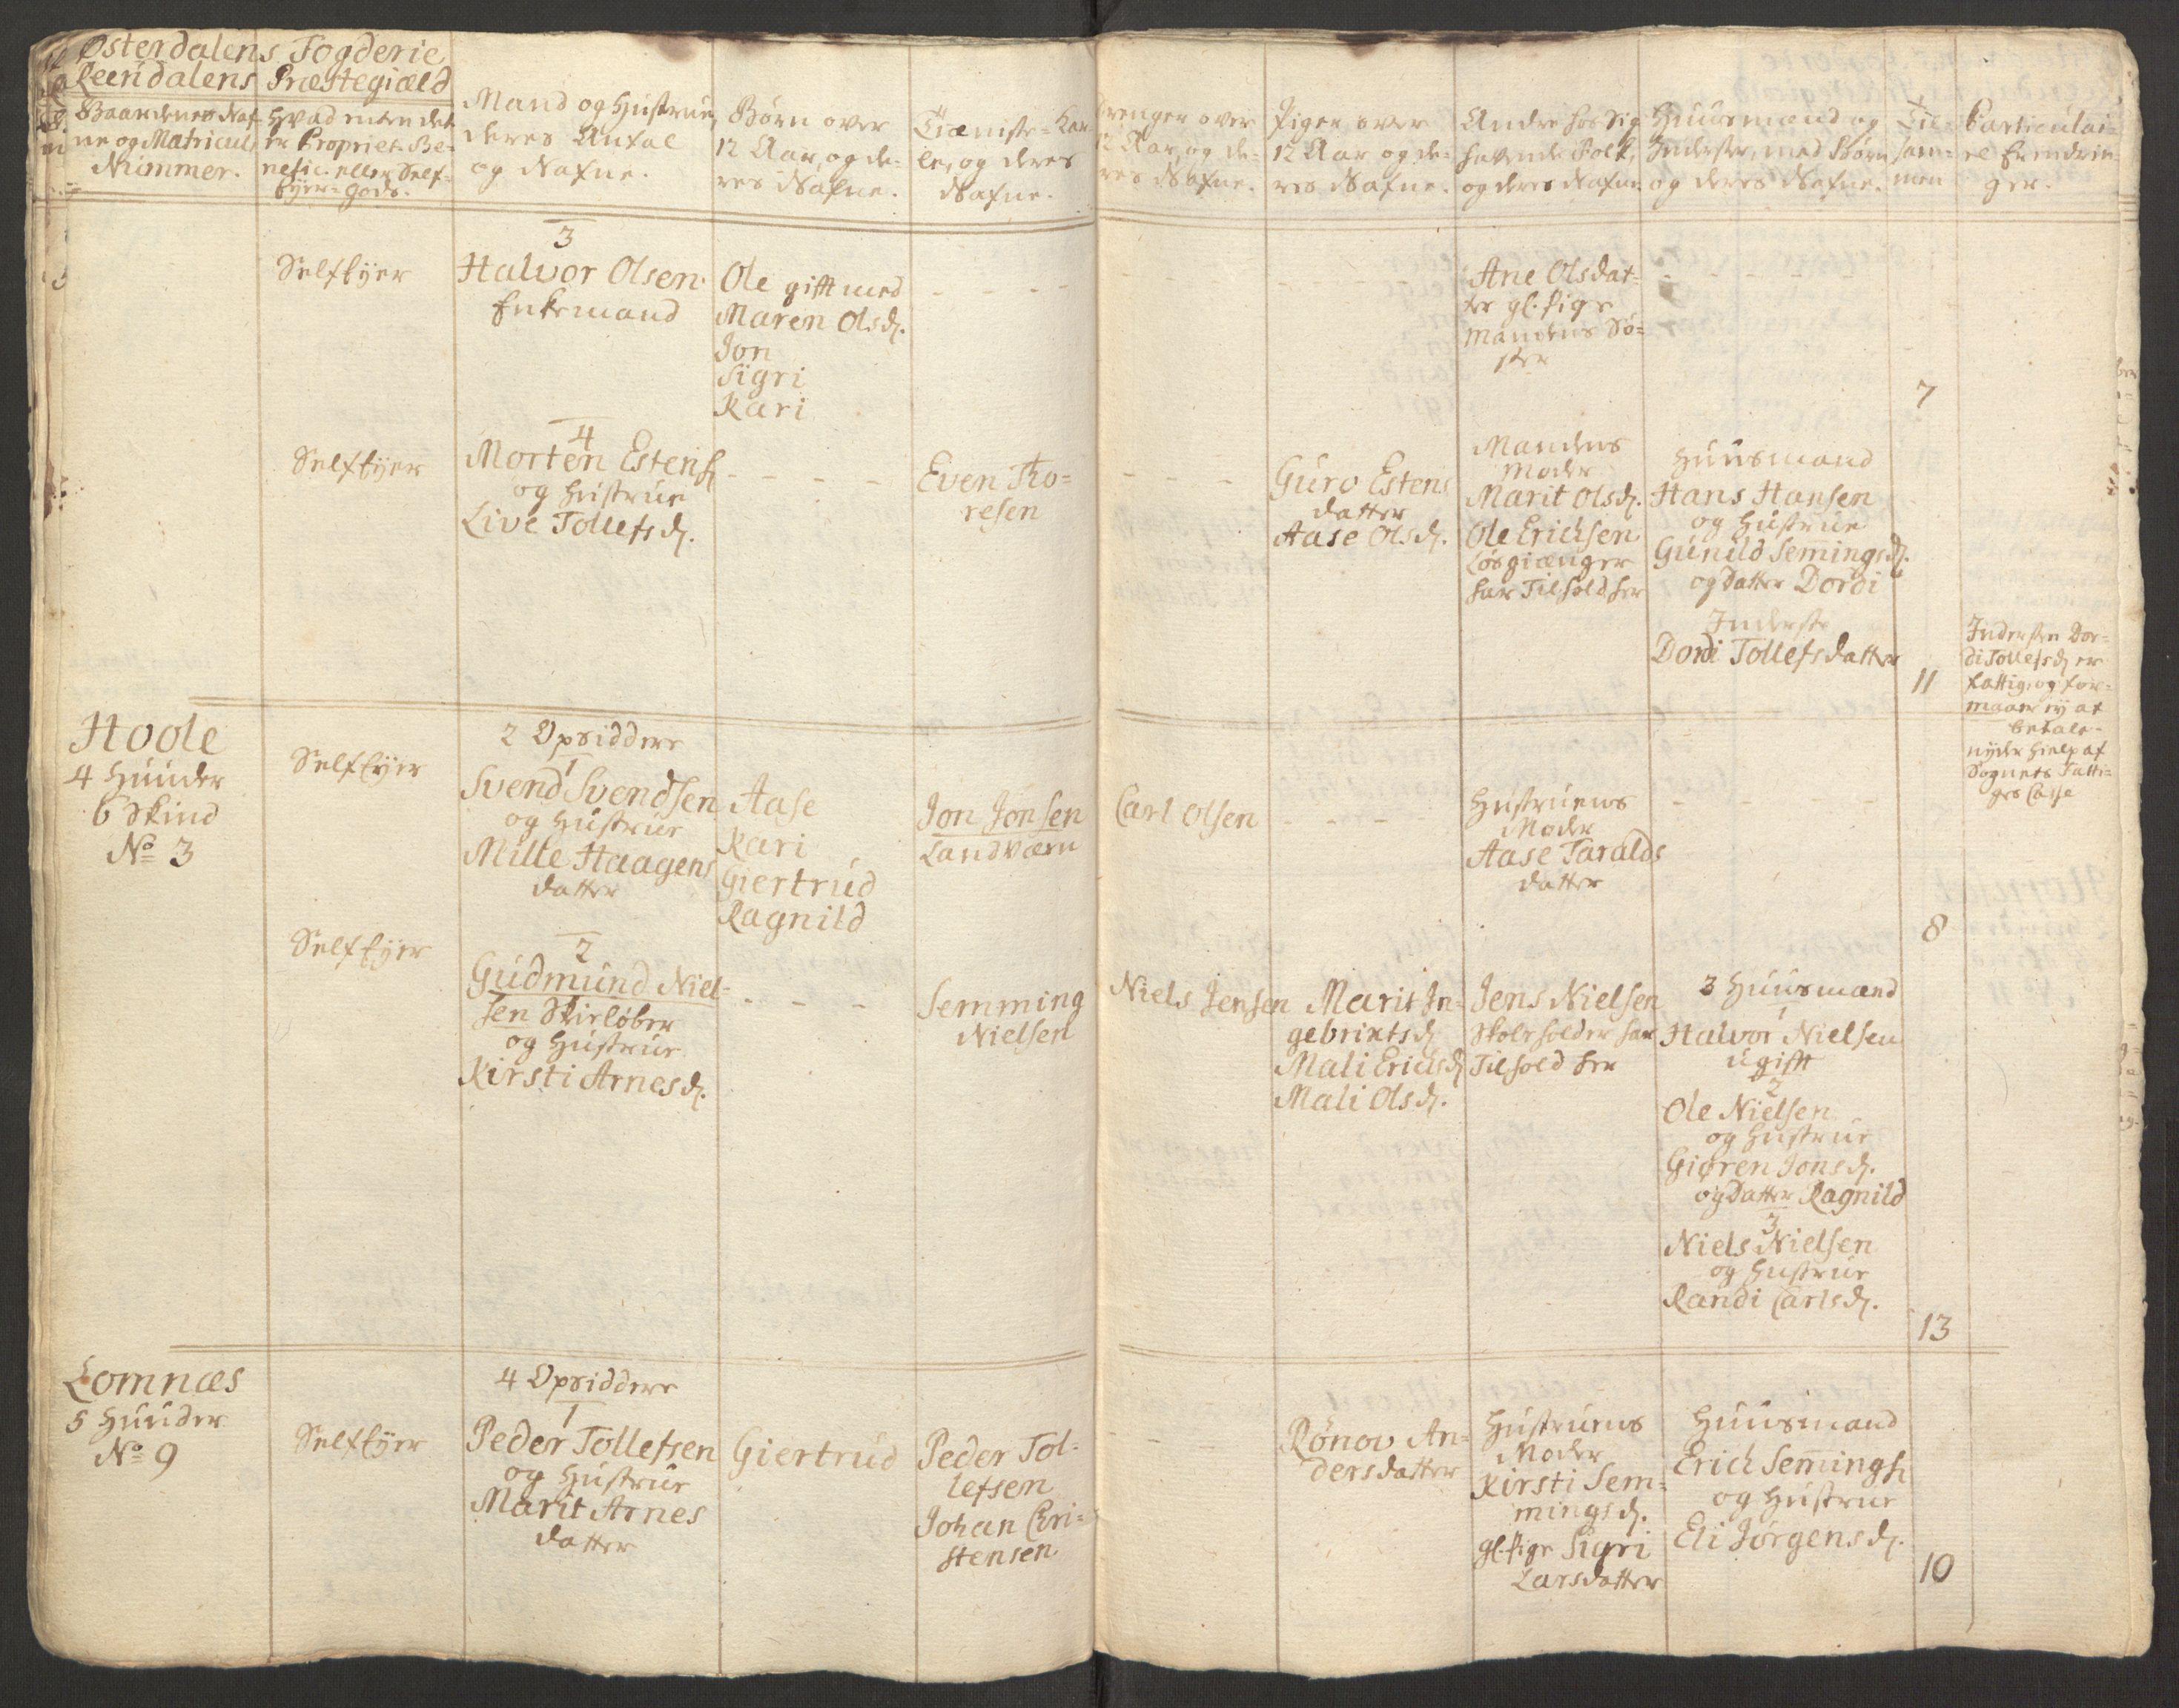 Østerdalens Fogderie
Reendalens Præstegiæld
Gaardenes Naf-
ne og Matricul
Nummer.
Hvad enten det
er Propriet. Be-
nefic. eller Self-
Eyer-Gods.
Mand og Hustrue,
deres Antal
og Nafne.
Børn over
12 Aar, og de-
res Nafne.
Tieniste-Kar-
le, og deres
Nafne.
Drenger over
12 Aar, og de-
res Nafne.
Piger over
12 Aar og de-
res Nafne.
Andre hos sig
havende Folk,
og deres Nafne.
Huusmænd og
Inderster, med Børn
og deres Nafne.
Til-
sam-
men
Particulai-
re Erindrin-
ger.
SelfEyer
3
Halvor Olsen
Enkemand
Ole gift med
Maren Olsd.
Jon
Sigri
Kari
Ane Olsdat-
ter gl. Pige
Mandens Sø-
ster
7
SelfEyer
4
Morten Estens.
og Hustrue
Live Tollefsd.
Even Tho-
resen
Guro Estens
datter
Aase Olsd.
Mandens
Moder
Marit Olsd.
Ole Erichsen
Løsgiænger
har Tilhold her
Huusmand
Hans Hansen
og Hustrue
Gunild Semingsd.
og Datter Dordi
Inderste
Dordi Tollefsdatter
11
Indersten Dor-
di Tollefsd er
fattig, og for-
maaer ej at
betale-
nyder Hielp af
Sognets Fatti-
ges Casse
Hoole
4 Huuder
6 Skind
No 3
SelfEyer
2 Opsiddere
1
Svend Svendsen
og Hustrue
Mille Haagens
datter
Aase
Kari
Giertrud
Ragnild
Jon Jonsen
Landværn
Carl Olsen
Hustruens
Moder
Aase Taralds
datter
8
SelfEyer
2
Gudmund Niel-
sen Skieløber
og Hustrue
Kirsti Arnesd.
Semming
Nielsen
Niels Jensen
Marit In-
gebrixtsd
Mali Erichsd
Mali Olsd.
Jens Nielsen
Skoleholder har
Tilhold her
3 Huusmænd
1
Halvor Nielsen
ugift
2
Ole Nielsen
og Hustrue
Giøren Jonsd.
og Datter Ragnild
3
Niels Nielsen
og Hustrue
Randi Carlsd.
13
Lomnæs
5 Huuder
No 9
SelfEyer
4 Opsiddere
1
Peder Tollefsen
og Hustrue
Marit Arnes
datter
Giertrud
Peder Tol-
lefsen
Johan Chri-
stensen
Rønov An-
dersdatter
Hustruens
Moder
Kirsti Sem-
mingsd.
gl. Pige Sigri
Larsdatter
Huusmand
Erich Semings.
og Hustrue
Eli Jørgensd.
10